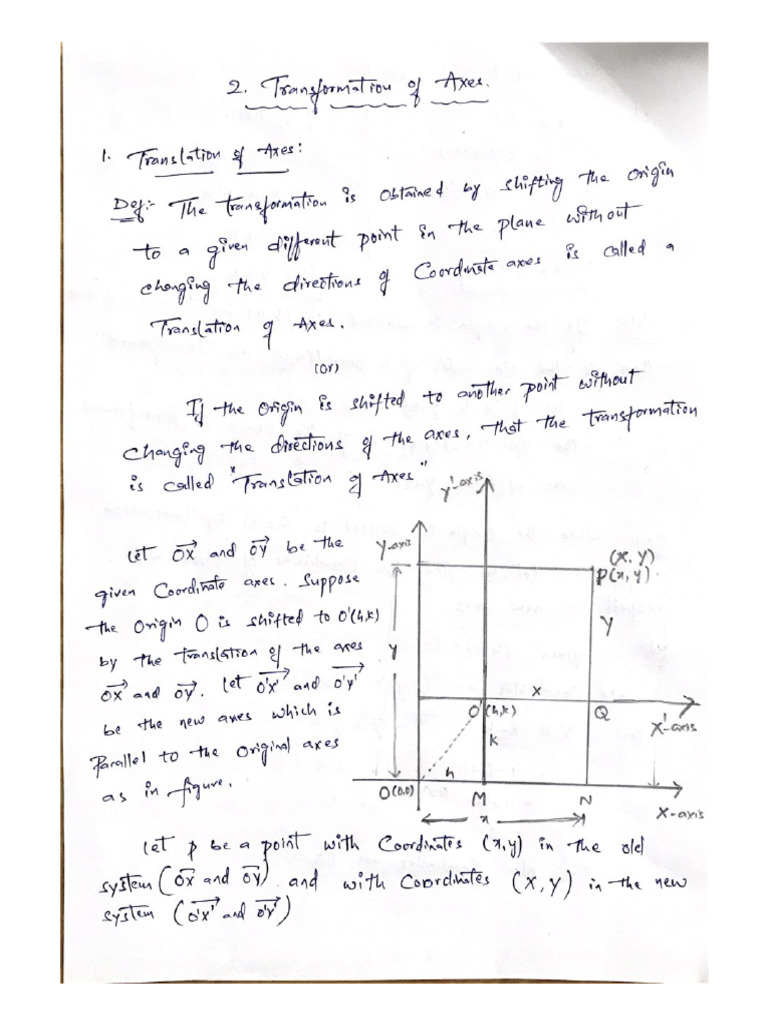 2. Transformation of Axes.
1. Translation of Axes:
Def:- The transformation is obtained by shifting the origin
to a given different point in the plane without
changing the directions of Coordinate axes is called a
Translation of Axes.
(Or)
If the origin is shifted to another point without
changing the directions of the axes, that the transformation
is called "Translation of Axes"
Let OX and OY be the
given Coordinate axes. Suppose
the origin O is shifted to O'(h,k)
by the translation of the axes
OX and OY. Let O'X' and O'Y'
be the new axes which is
Parallel to the original axes
as in figure.
Y'-axis
Y-axis
(X, Y)
P(x, y).
Y
y
X
O'(h,k)
Q
X'-axis
k
h
O(0,0)
M
N
X-axis
x
Let P be a point with Coordinates (x,y) in the old
system (OX and OY) and with Coordinates (X, Y) in the new
system (O'X' and O'Y')